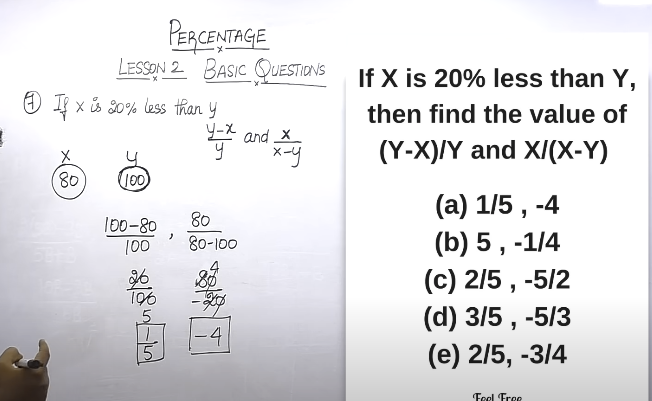 PERCENTAGE
LESSON 2 BASIC QUESTIONS
7 If x is 20% less than y
y-x/y and x/x-y
X y
80 100
100-80/100 , 80/80-100
20/100 80/-20
5 4
1/5 -4
If X is 20% less than Y,
then find the value of
(Y-X)/Y and X/(X-Y)
(a) 1/5 , -4
(b) 5 , -1/4
(c) 2/5 , -5/2
(d) 3/5 , -5/3
(e) 2/5, -3/4
Feel Free